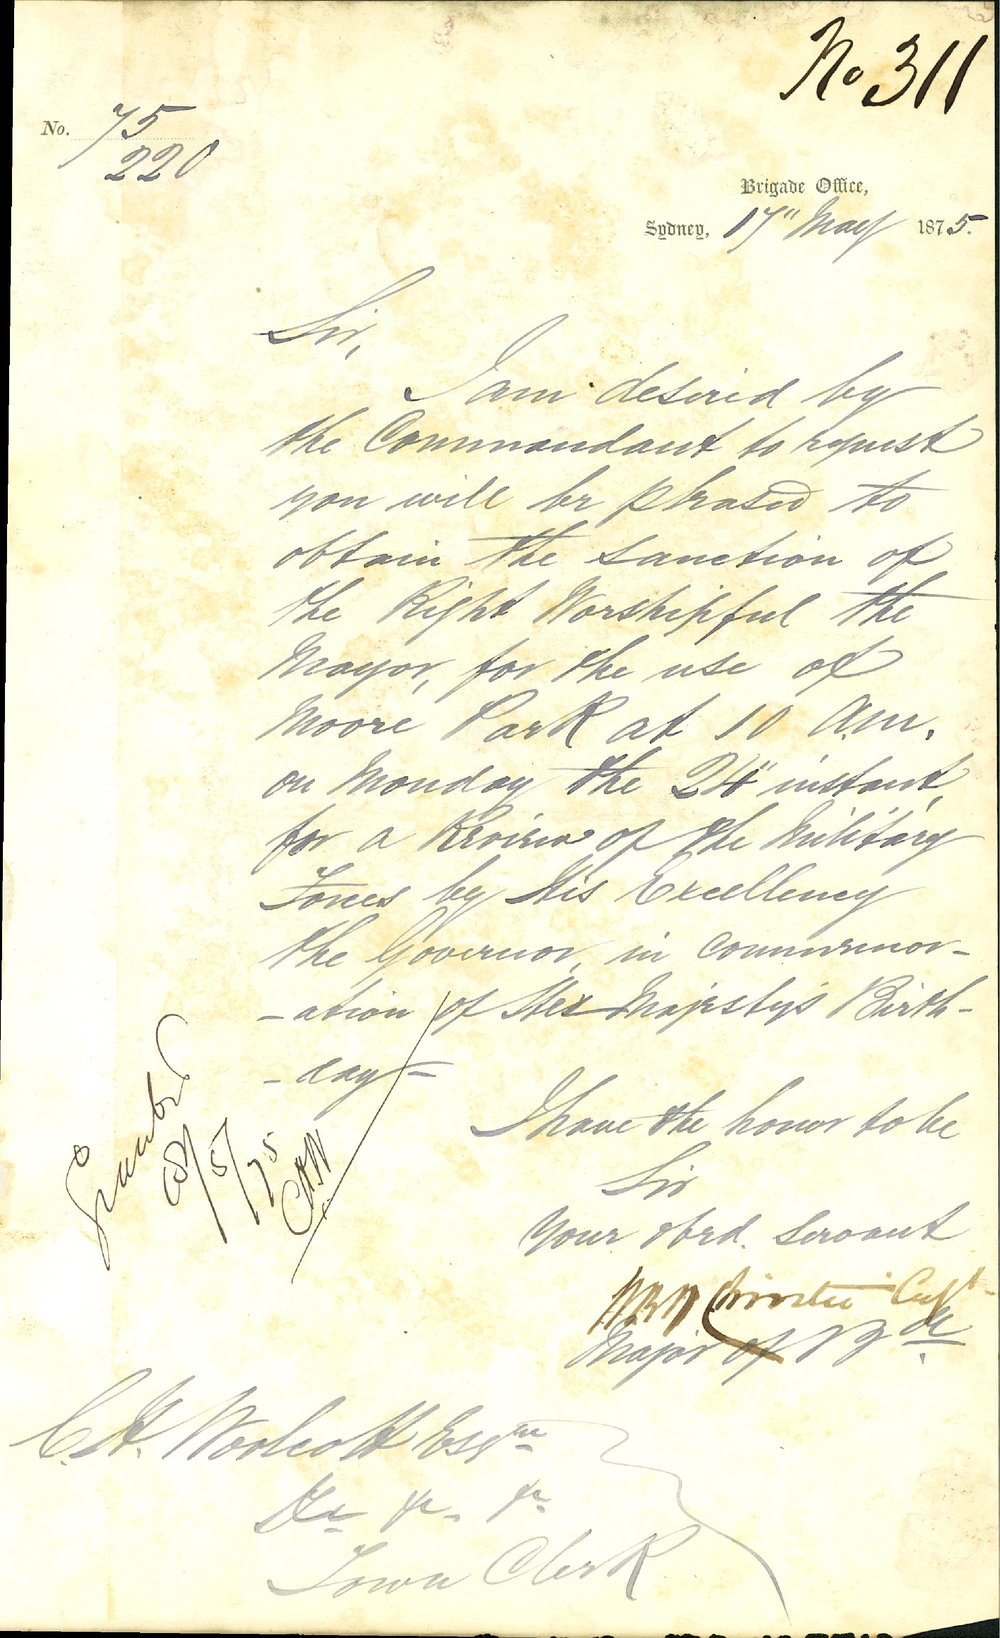 No 311
No. 75
220
Brigade Office,
Sydney, 17" May 1875.
Sir,
I am desired by
the Commandant to request
you will be pleased to
obtain the sanction of
the Right Worshipful the
Mayor, for the use of
Moore Park at 10 a.m.
on Monday the 24" instant,
for a Review of the Military
Forces by His Excellency
the Governor, in commemor-
-ation of Her Majesty's Birth-
-day =
Granted
18/5/75
CHW
I have the honor to be
Sir
Your obed. servant
Christie Capt
Major of Bde
C.H. Woolcott Esqre
&c &c. &c
Town Clerk